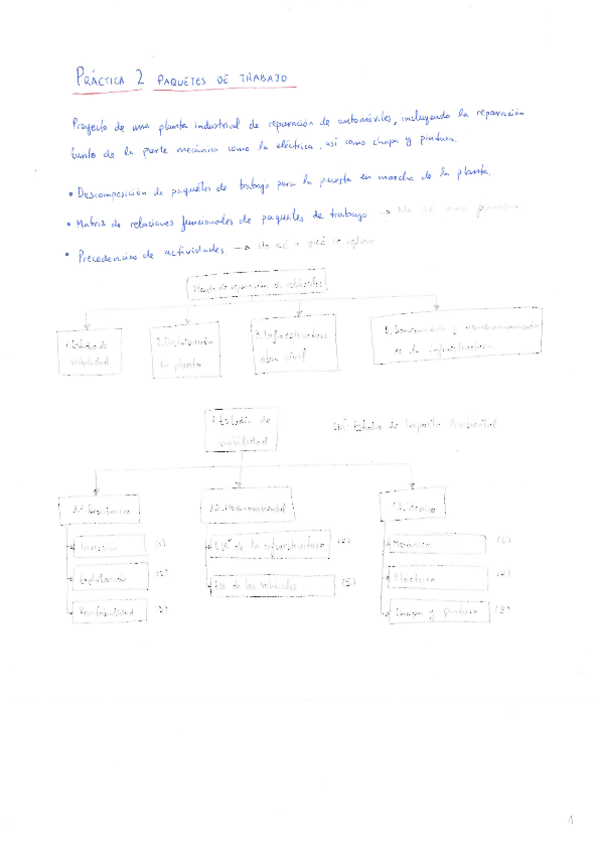 PRÁCTICA 2 PAQUETES DE TRABAJO
Proyecto de una planta industrial de reparación de automóviles, incluyendo la reparación
tanto de la parte mecánica como la eléctrica, así como chapa y pintura.
• Descomposición de paquetes de trabajo para la puesta en marcha de la planta.
• Matriz de relaciones funcionales de paquetes de trabajo. → No sé como
• Precedencias de actividades. → No sé a qué se refiere
Planta de reparación de vehículos
1. Estudio de viabilidad
2. Distribución en planta
3. Infraestructura obra civil
y de la infraestructura
1. Estudio de viabilidad
Estudio de Impacto Ambiental
1.1. Económico
1.2. Medioambiental
Inversión
Explotación
Rentabilidad
de la infraestructura
de los vehículos
Mecánica
Eléctrica
Chapa y pintura
1